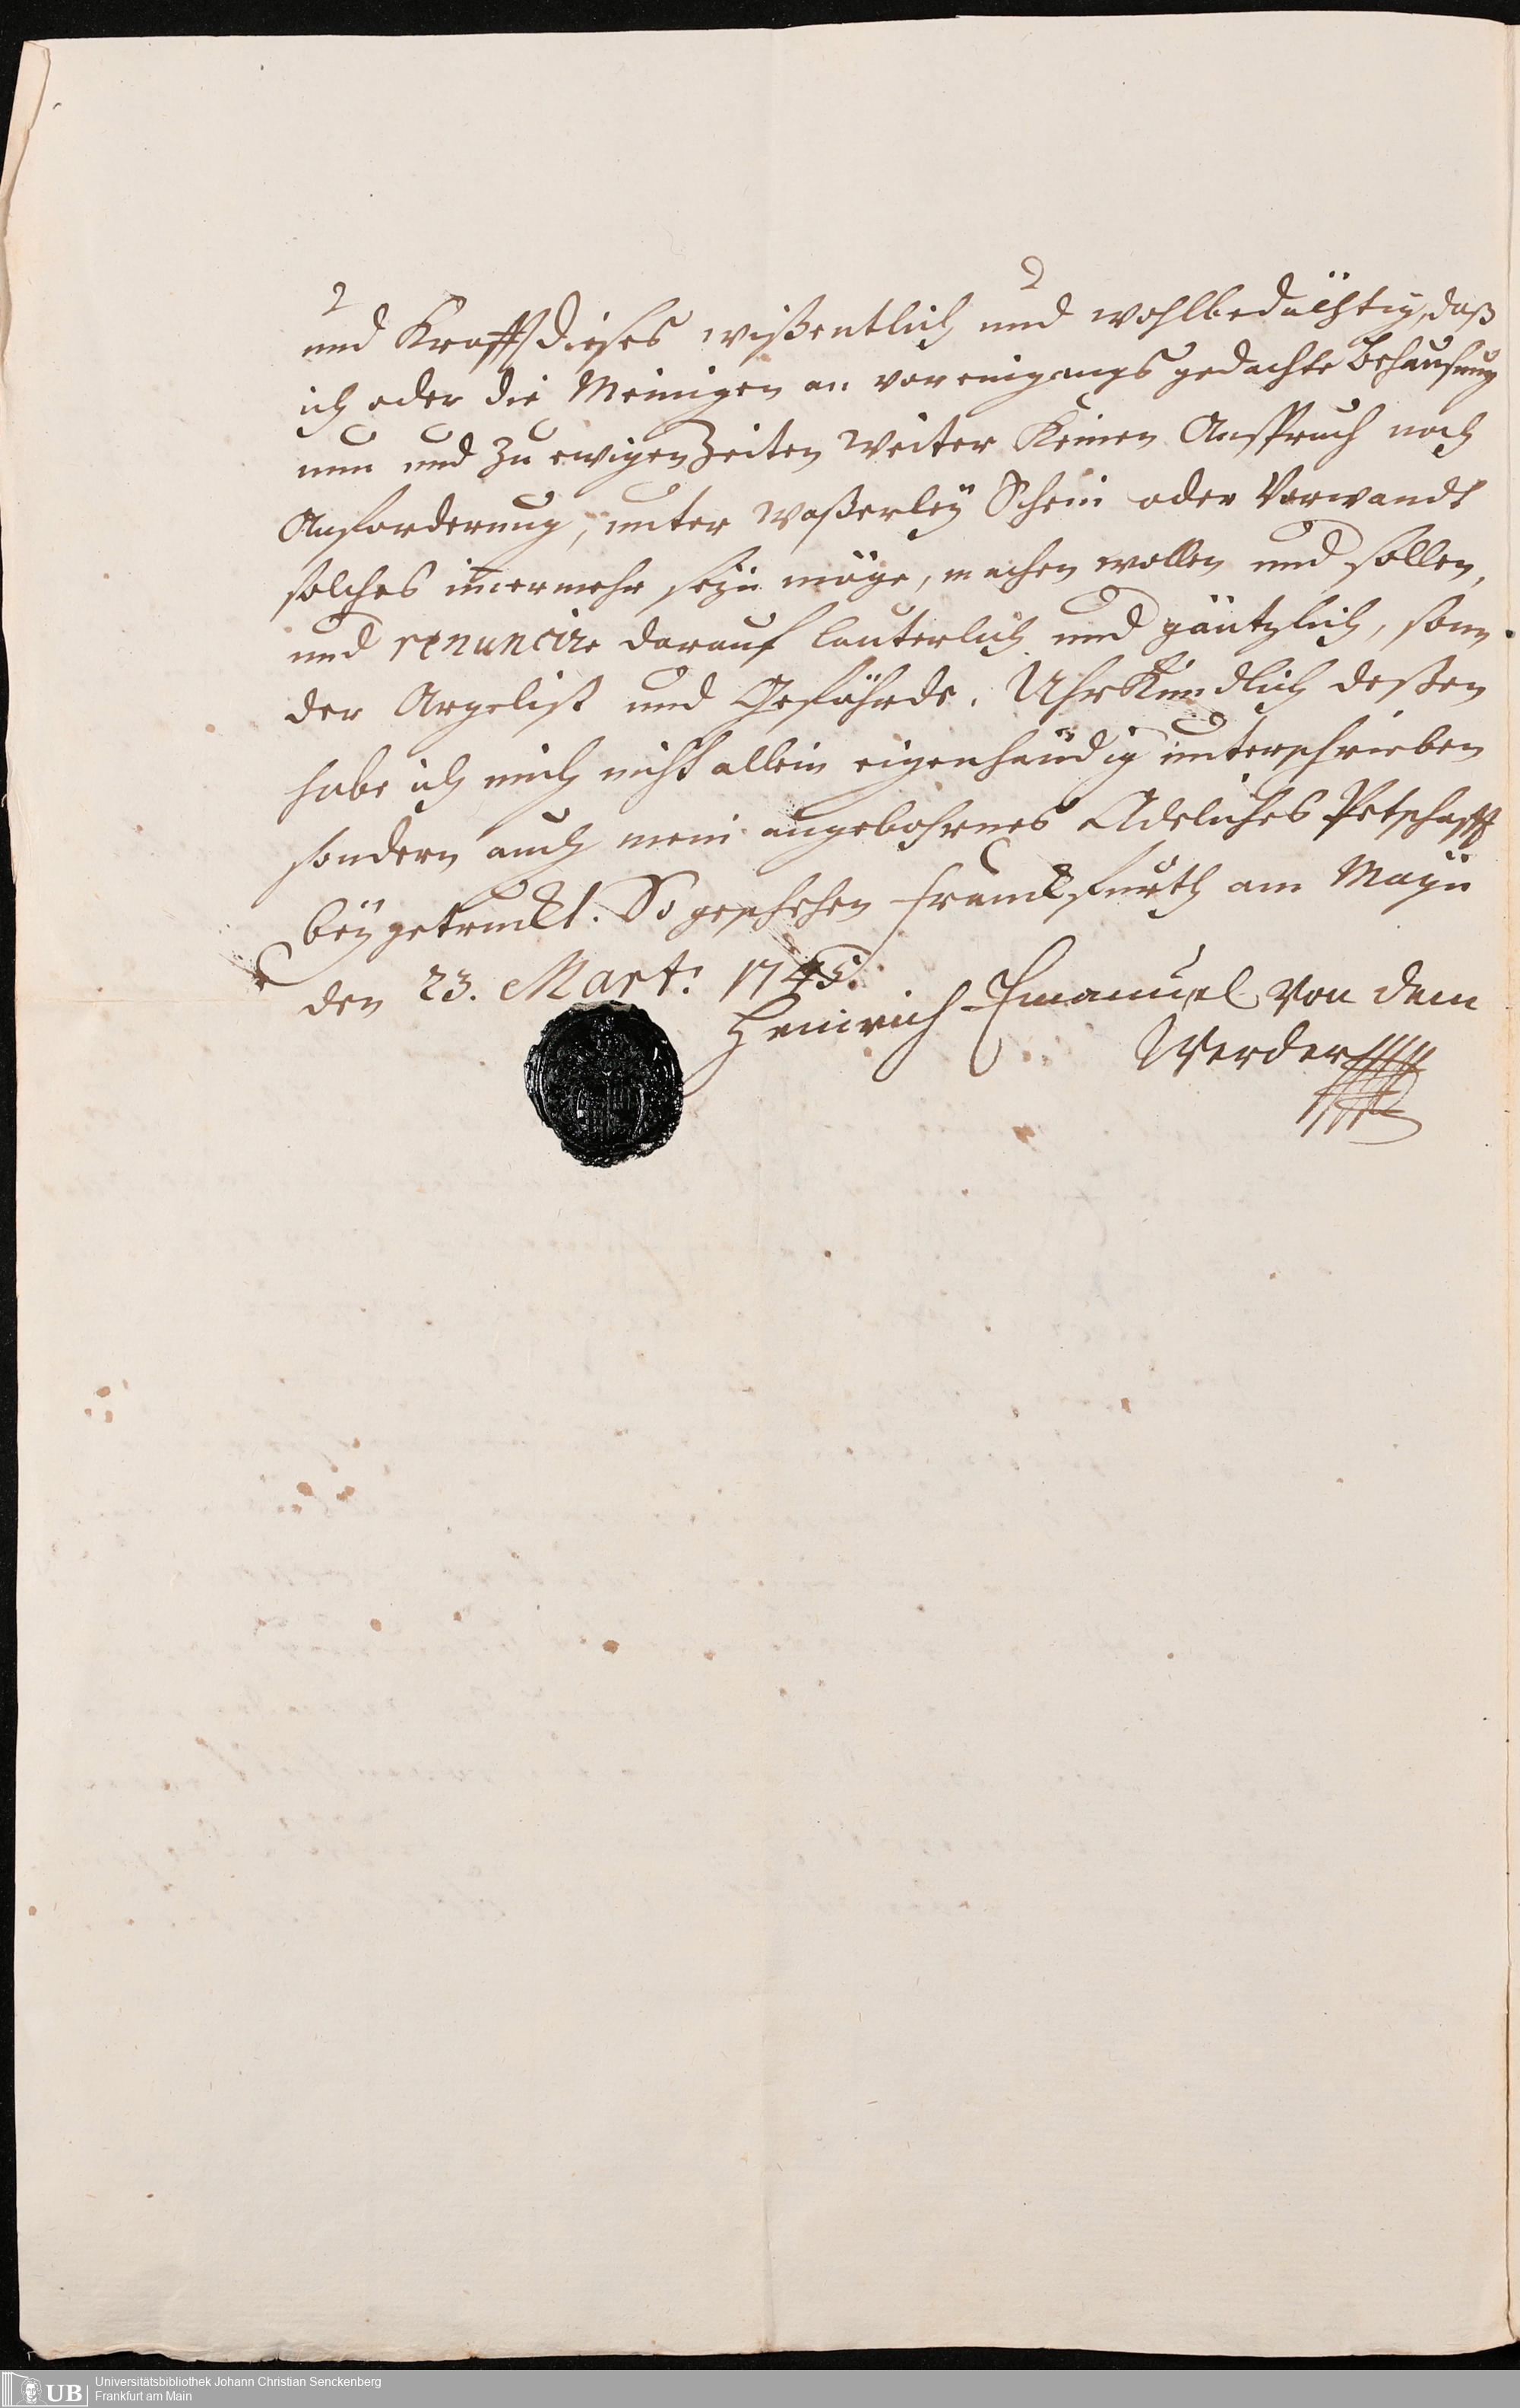 und Krafft dieses wißentlich und wohlbedächtig, daß
ich oder die Meinigen an vor eingangs gedachte Behausung
nun und zu ewigen Zeiten weiter keinen Anspruch noch
Anforderung, unter waßerleÿ Schein oder Vorwandt
solches im̅ermehr seÿn möge, machen wollen und sollen,
und renuncire darauf lauterlich und gäntzlich, son-
der Argelist und Gefährde. Uhrkundlich deßen
habe ich mich nicht allein eigenhändig unterschrieben
sondern auch mein angebohrnes Adeliches Petschafft
beÿgetruckt. So geschehen Franckfurth am Maÿn
den 23. Mart: 1745.
Heinrich Emanuel von dem
Werder
UB Universitätsbibliothek Johann Christian Senckenberg
Frankfurt am Main